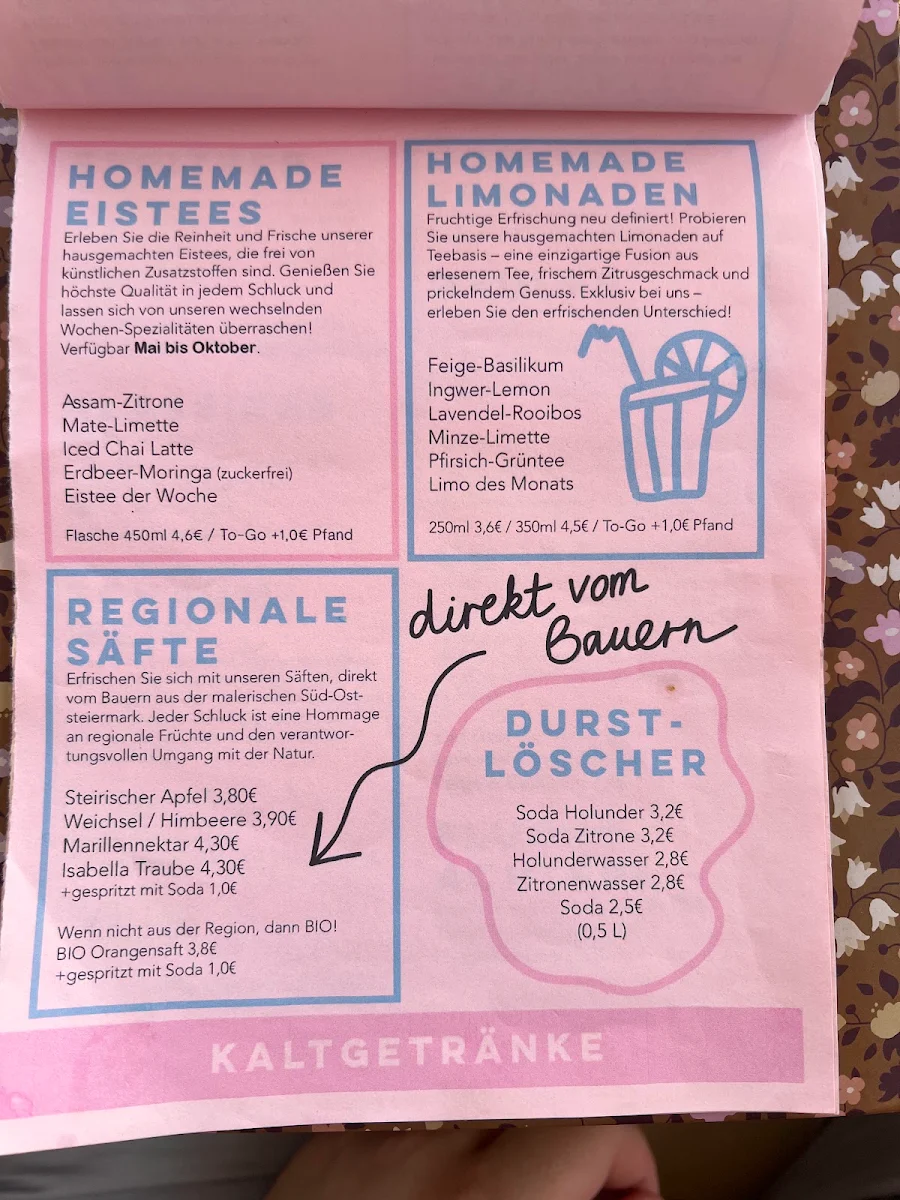 HOMEMADE
EISTEES
Erleben Sie die Reinheit und Frische unserer
hausgemachten Eistees, die frei von
künstlichen Zusatzstoffen sind. Genießen Sie
höchste Qualität in jedem Schluck und
lassen sich von unseren wechselnden
Wochen-Spezialitäten überraschen!
Verfügbar Mai bis Oktober.
Assam-Zitrone
Mate-Limette
Iced Chai Latte
Erdbeer-Moringa (zuckerfrei)
Eistee der Woche
Flasche 450ml 4,6€ / To-Go +1,0€ Pfand
HOMEMADE
LIMONADEN
Fruchtige Erfrischung neu definiert! Probieren
Sie unsere hausgemachten Limonaden auf
Teebasis – eine einzigartige Fusion aus
erlesenem Tee, frischem Zitrusgeschmack und
prickelndem Genuss. Exklusiv bei uns –
erleben Sie den erfrischenden Unterschied!
Feige-Basilikum
Ingwer-Lemon
Lavendel-Rooibos
Minze-Limette
Pfirsich-Grüntee
Limo des Monats
250ml 3,6€ / 350ml 4,5€ / To-Go +1,0€ Pfand
REGIONALE
SÄFTE
Erfrischen Sie sich mit unseren Säften, direkt
vom Bauern aus der malerischen Süd-Ost-
steiermark. Jeder Schluck ist eine Hommage
an regionale Früchte und den verantwor-
tungsvollen Umgang mit der Natur.
Steirischer Apfel 3,80€
Weichsel / Himbeere 3,90€
Marillennektar 4,30€
Isabella Traube 4,30€
+gespritzt mit Soda 1,0€
Wenn nicht aus der Region, dann BIO!
BIO Orangensaft 3,8€
+gespritzt mit Soda 1,0€
direkt vom
Bauern
DURST-
LÖSCHER
Soda Holunder 3,2€
Soda Zitrone 3,2€
Holunderwasser 2,8€
Zitronenwasser 2,8€
Soda 2,5€
(0,5 L)
KALTGETRÄNKE